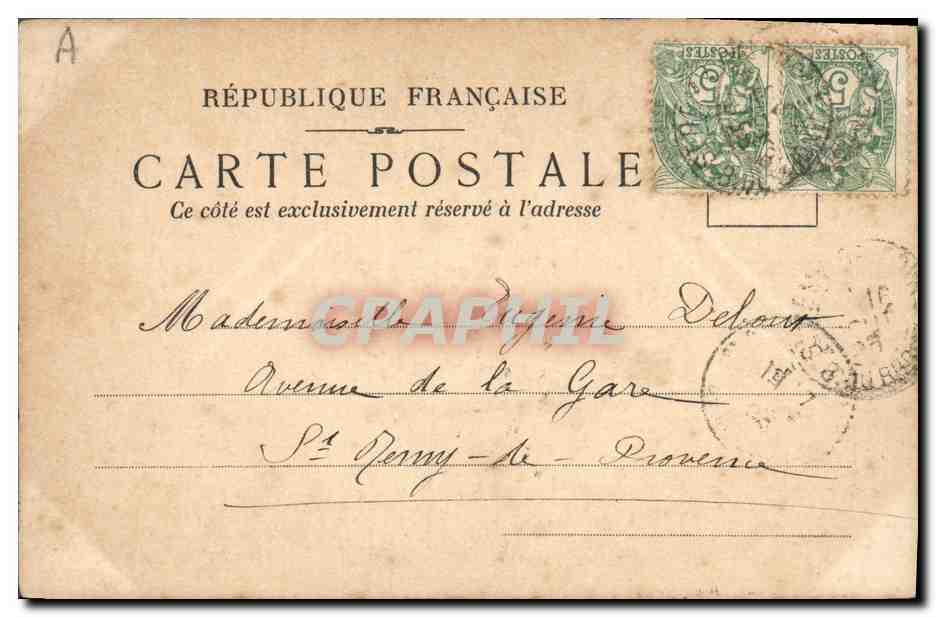 A
RÉPUBLIQUE FRANÇAISE
CARTE POSTALE
Ce côté est exclusivement réservé à l'adresse
POSTES 5 POSTES 5
CPAPHIL
Mademoiselle Eugénie Debout
Avenue de la Gare
St Remy-de-Provence